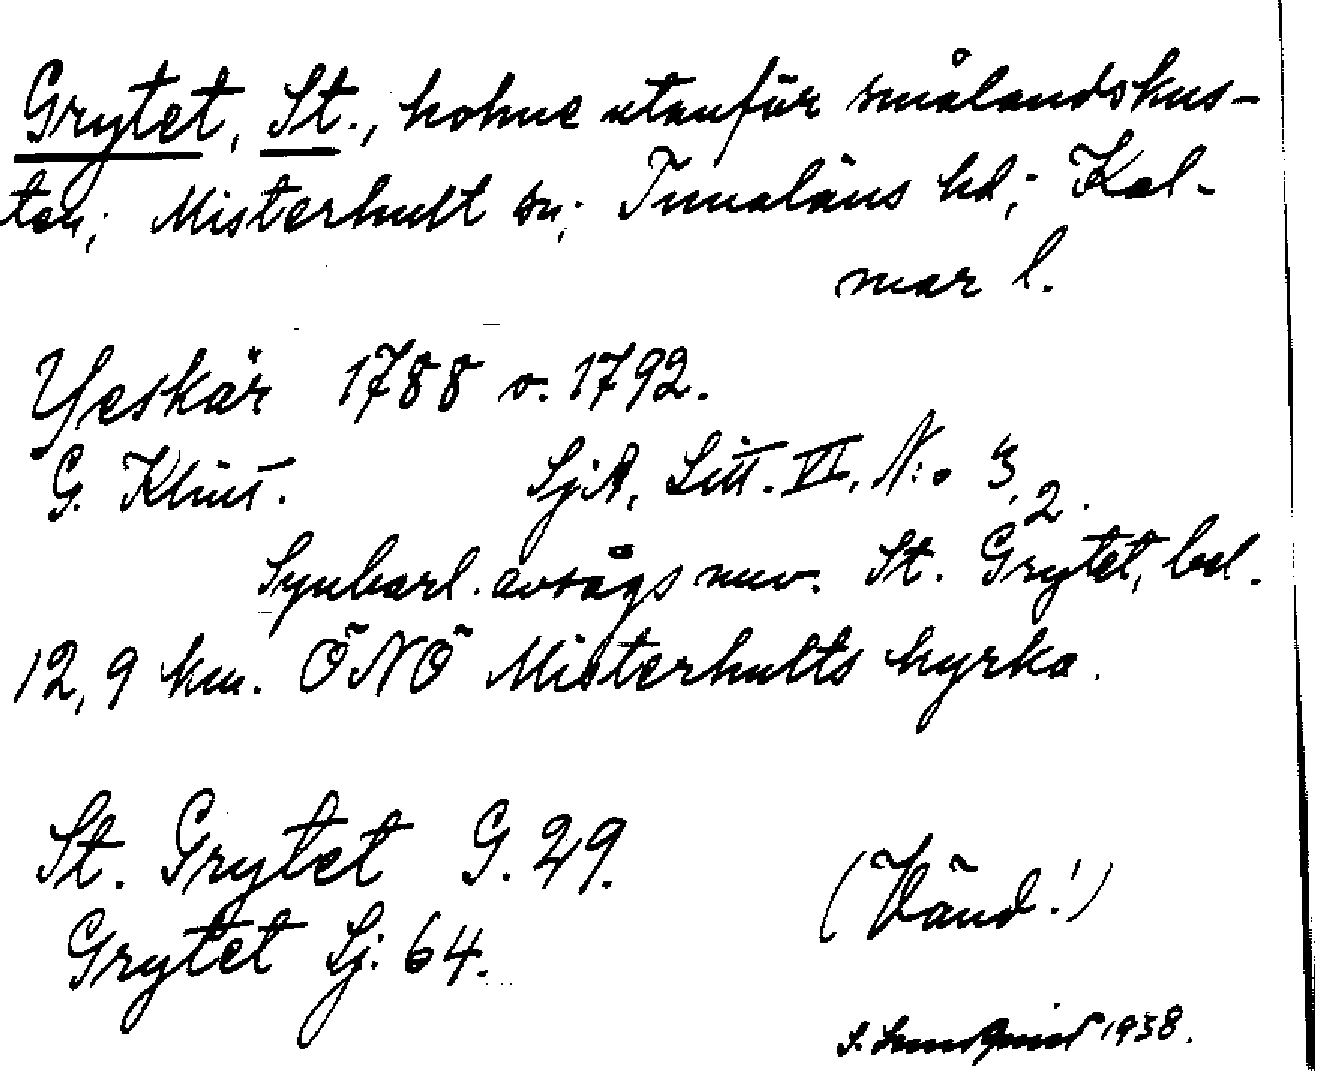 Grytet, St., holme utanför smålandskus-
ten; Misterhult sn; Tunaläns hd; Kal-
mar l.
Yeskär 1788 o. 1792.
G. Klint. SjA, Litt. VI, N:o 3, 2.
Synbarl. avsågs nuv. St. Grytet, bel.
12,9 km. ÖNÖ Misterhults kyrka.
St. Grytet G. 29.
Grytet Sj. 64.
(Vänd!)
S. 1938.